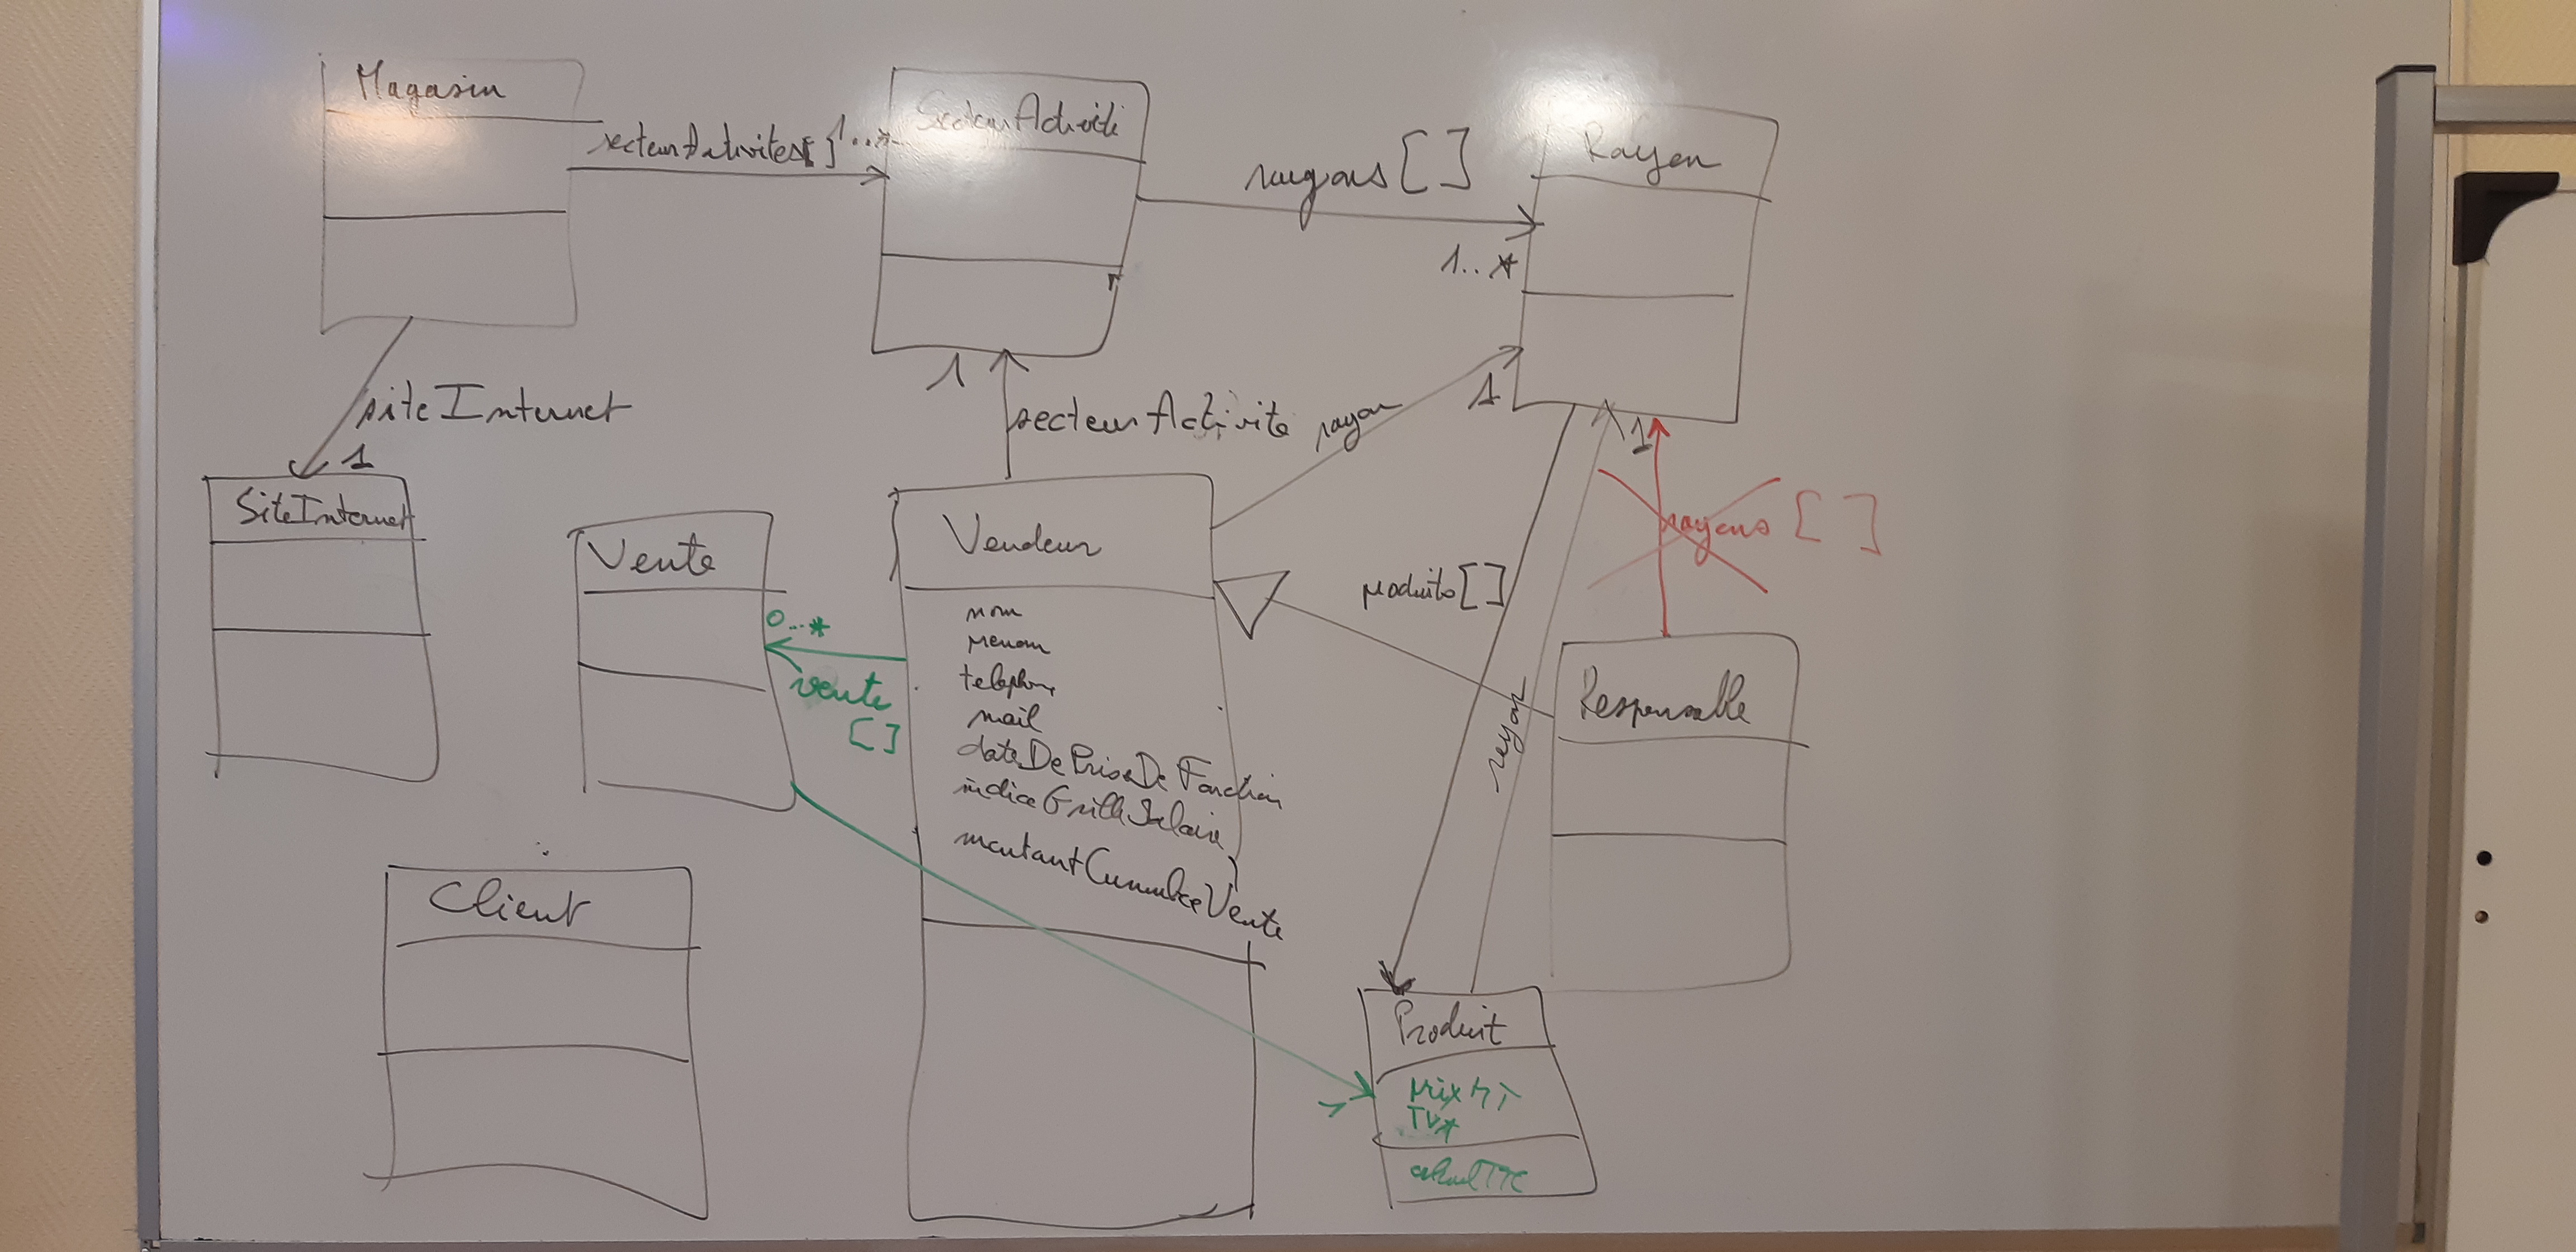 Magasin
secteurActivites[] 1...*
SecteurActivité
rayons []
1..*
Rayon
siteInternet
1
1
secteurActivite
rayon
1
1
rayons []
SiteInternet
Vente
0...*
vente
[]
Vendeur
nom
prenom
telephone
mail
dateDePriseDeFonction
indiceGrilleSalaire
montantCumuléeVente
produits []
rayon
Responsable
Client
Produit
prixHT
TVA
calculTTC